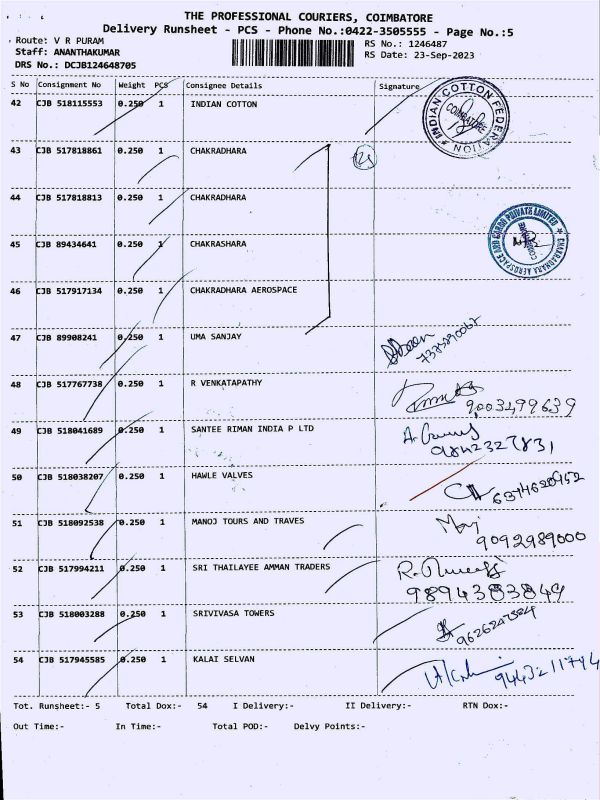 THE PROFESSIONAL COURIERS, COIMBATORE
Delivery Runsheet - PCS - Phone No.:0422-3505555 - Page No.:5
Route: V R PURAM RS No.: 1246487
Staff: ANANTHAKUMAR RS Date: 23-Sep-2023
DRS No.: DCJB124648705
S No Consignment No Weight PCS Consignee Details Signature
42 CJB 518115553 0.250 1 INDIAN COTTON
INDIAN COTTON FEDERATION
COIMBATORE
43 CJB 517818861 0.250 1 CHAKRADHARA
44 CJB 517818813 0.250 1 CHAKRADHARA
45 CJB 89434641 0.250 1 CHAKRASHARA
CHAKRADHARA AEROSPACE AND CARGO PRIVATE LIMITED
46 CJB 517917134 0.250 1 CHAKRADHARA AEROSPACE
47 CJB 89908241 0.250 1 UMA SANJAY
48 CJB 517767738 0.250 1 R VENKATAPATHY
9003499639
49 CJB 518041689 0.250 1 SANTEE RIMAN INDIA P LTD
9842327831
50 CJB 518038207 0.250 1 HAWLE VALVES
51 CJB 518092538 0.250 1 MANOJ TOURS AND TRAVES
9092989000
52 CJB 517994211 0.250 1 SRI THAILAYEE AMMAN TRADERS
9894383849
53 CJB 518003288 0.250 1 SRIVIVASA TOWERS
54 CJB 517945585 0.250 1 KALAI SELVAN
Tot. Runsheet:- 5 Total Dox:- 54 I Delivery:- II Delivery:- RTN Dox:-
Out Time:- In Time:- Total POD:- Delvy Points:-